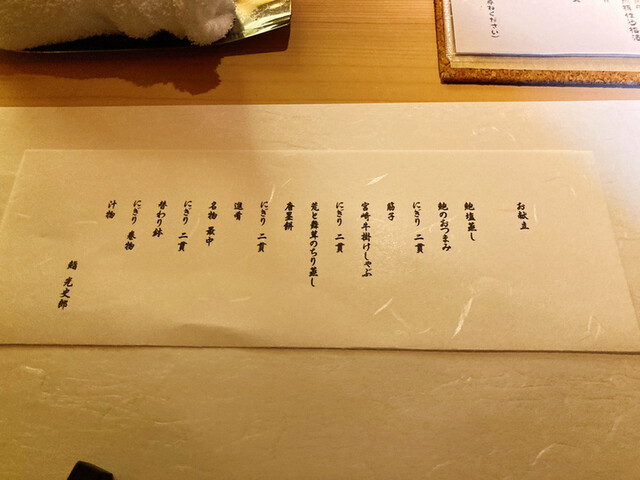 お献立
鮑塩蒸し
鮑のおつまみ
にぎり 二貫
筋子
宮崎牛掛けしゃぶ
にぎり 二貫
荒と舞茸のちり蒸し
唐墨餅
にぎり 二貫
進肴
名物 最中
にぎり 二貫
替わり鉢
にぎり 巻物
汁物
鮨 光史郎
ねください）